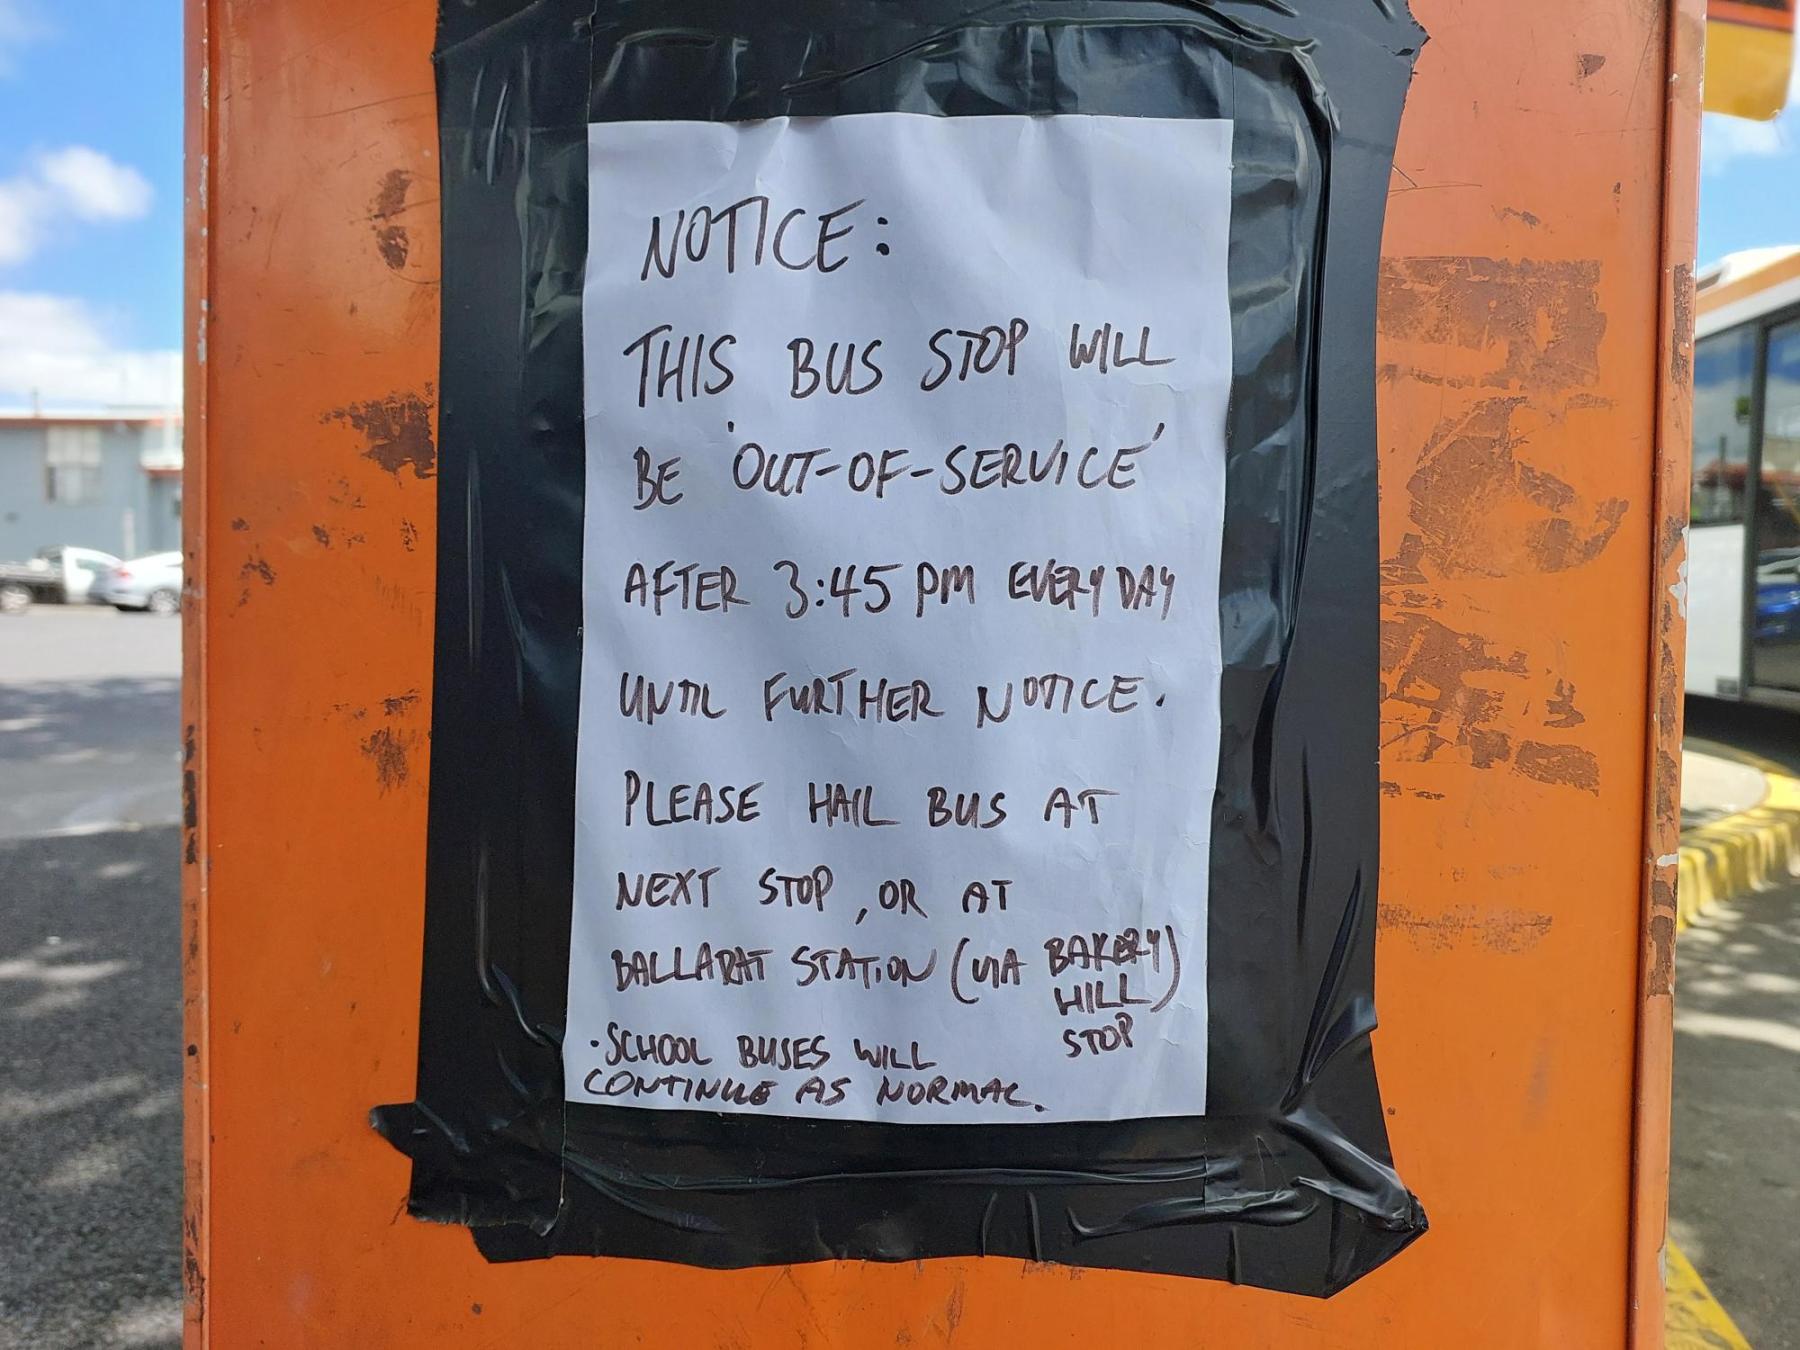 NOTICE:
THIS BUS STOP WILL
BE 'OUT-OF-SERVICE'
AFTER 3:45 PM EVERYDAY
UNTIL FURTHER NOTICE.
PLEASE HAIL BUS AT
NEXT STOP, OR AT
BALLARAT STATION (VIA BAKERY
HILL)
STOP
·SCHOOL BUSES WILL
CONTINUE AS NORMAL.